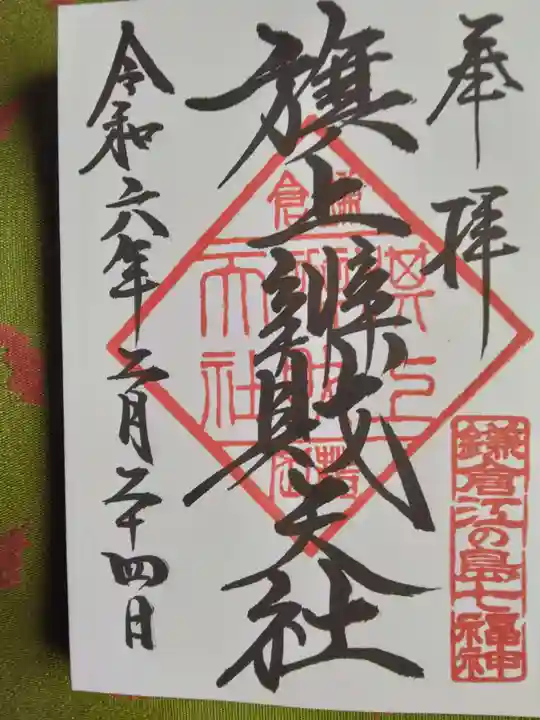 奉拝
鎌倉江の島七福神
旗上辨財天社
令和六年二月二十四日